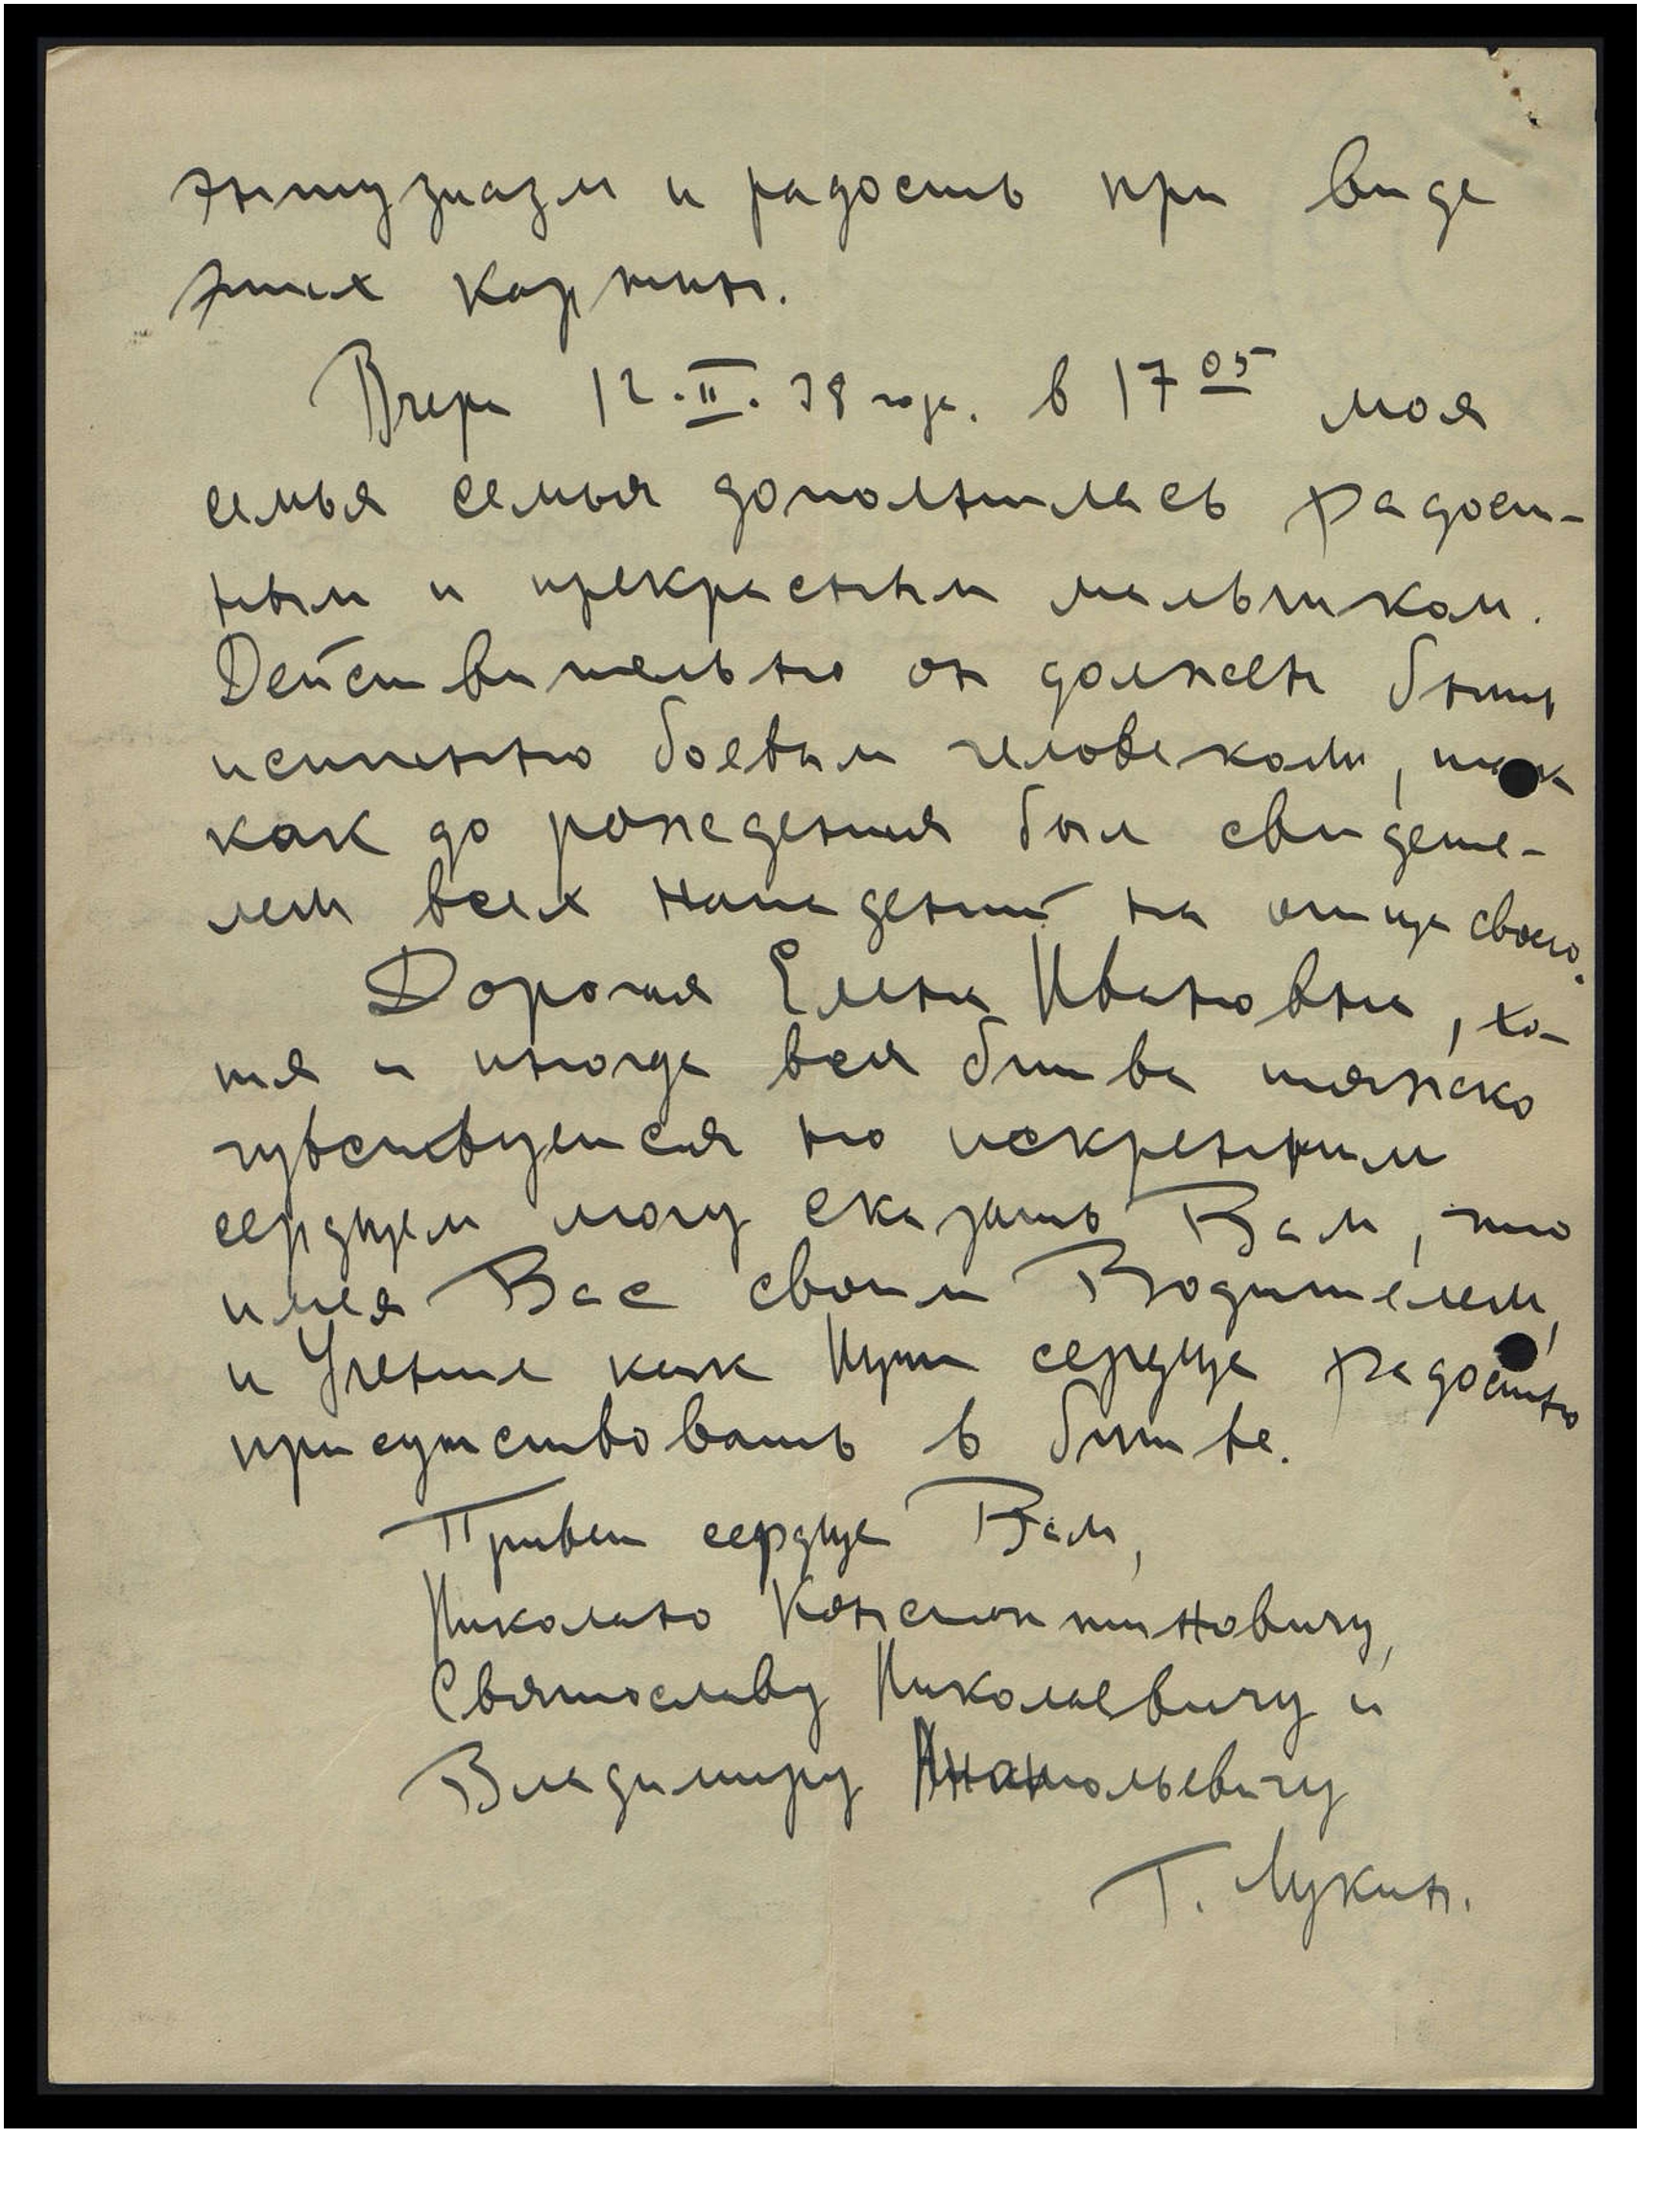 энтузиазм и радость при виде
этих картин.
Вчера 12.II.38 года. в 17 05 моя
семья семья дополнилась радост-
ным и прекрасным мальчиком.
Действительно он должен быть
истинно боевым человеком, так
как до рождения был свидете-
лем всех нападений на отца своего.
Дорогая Елена Ивановна, хо-
тя и иногда вся битва тяжко
чувствуется но искренним
сердцем могу сказать Вам, что
имея Вас своим Водителем,
и Учение как Пути сердце радостно
присутствовать в битве.
Привет сердца Вам,
Николаю Константиновичу,
Святославу Николаевичу и
Владимиру Анатольевичу
Г. Лукин.